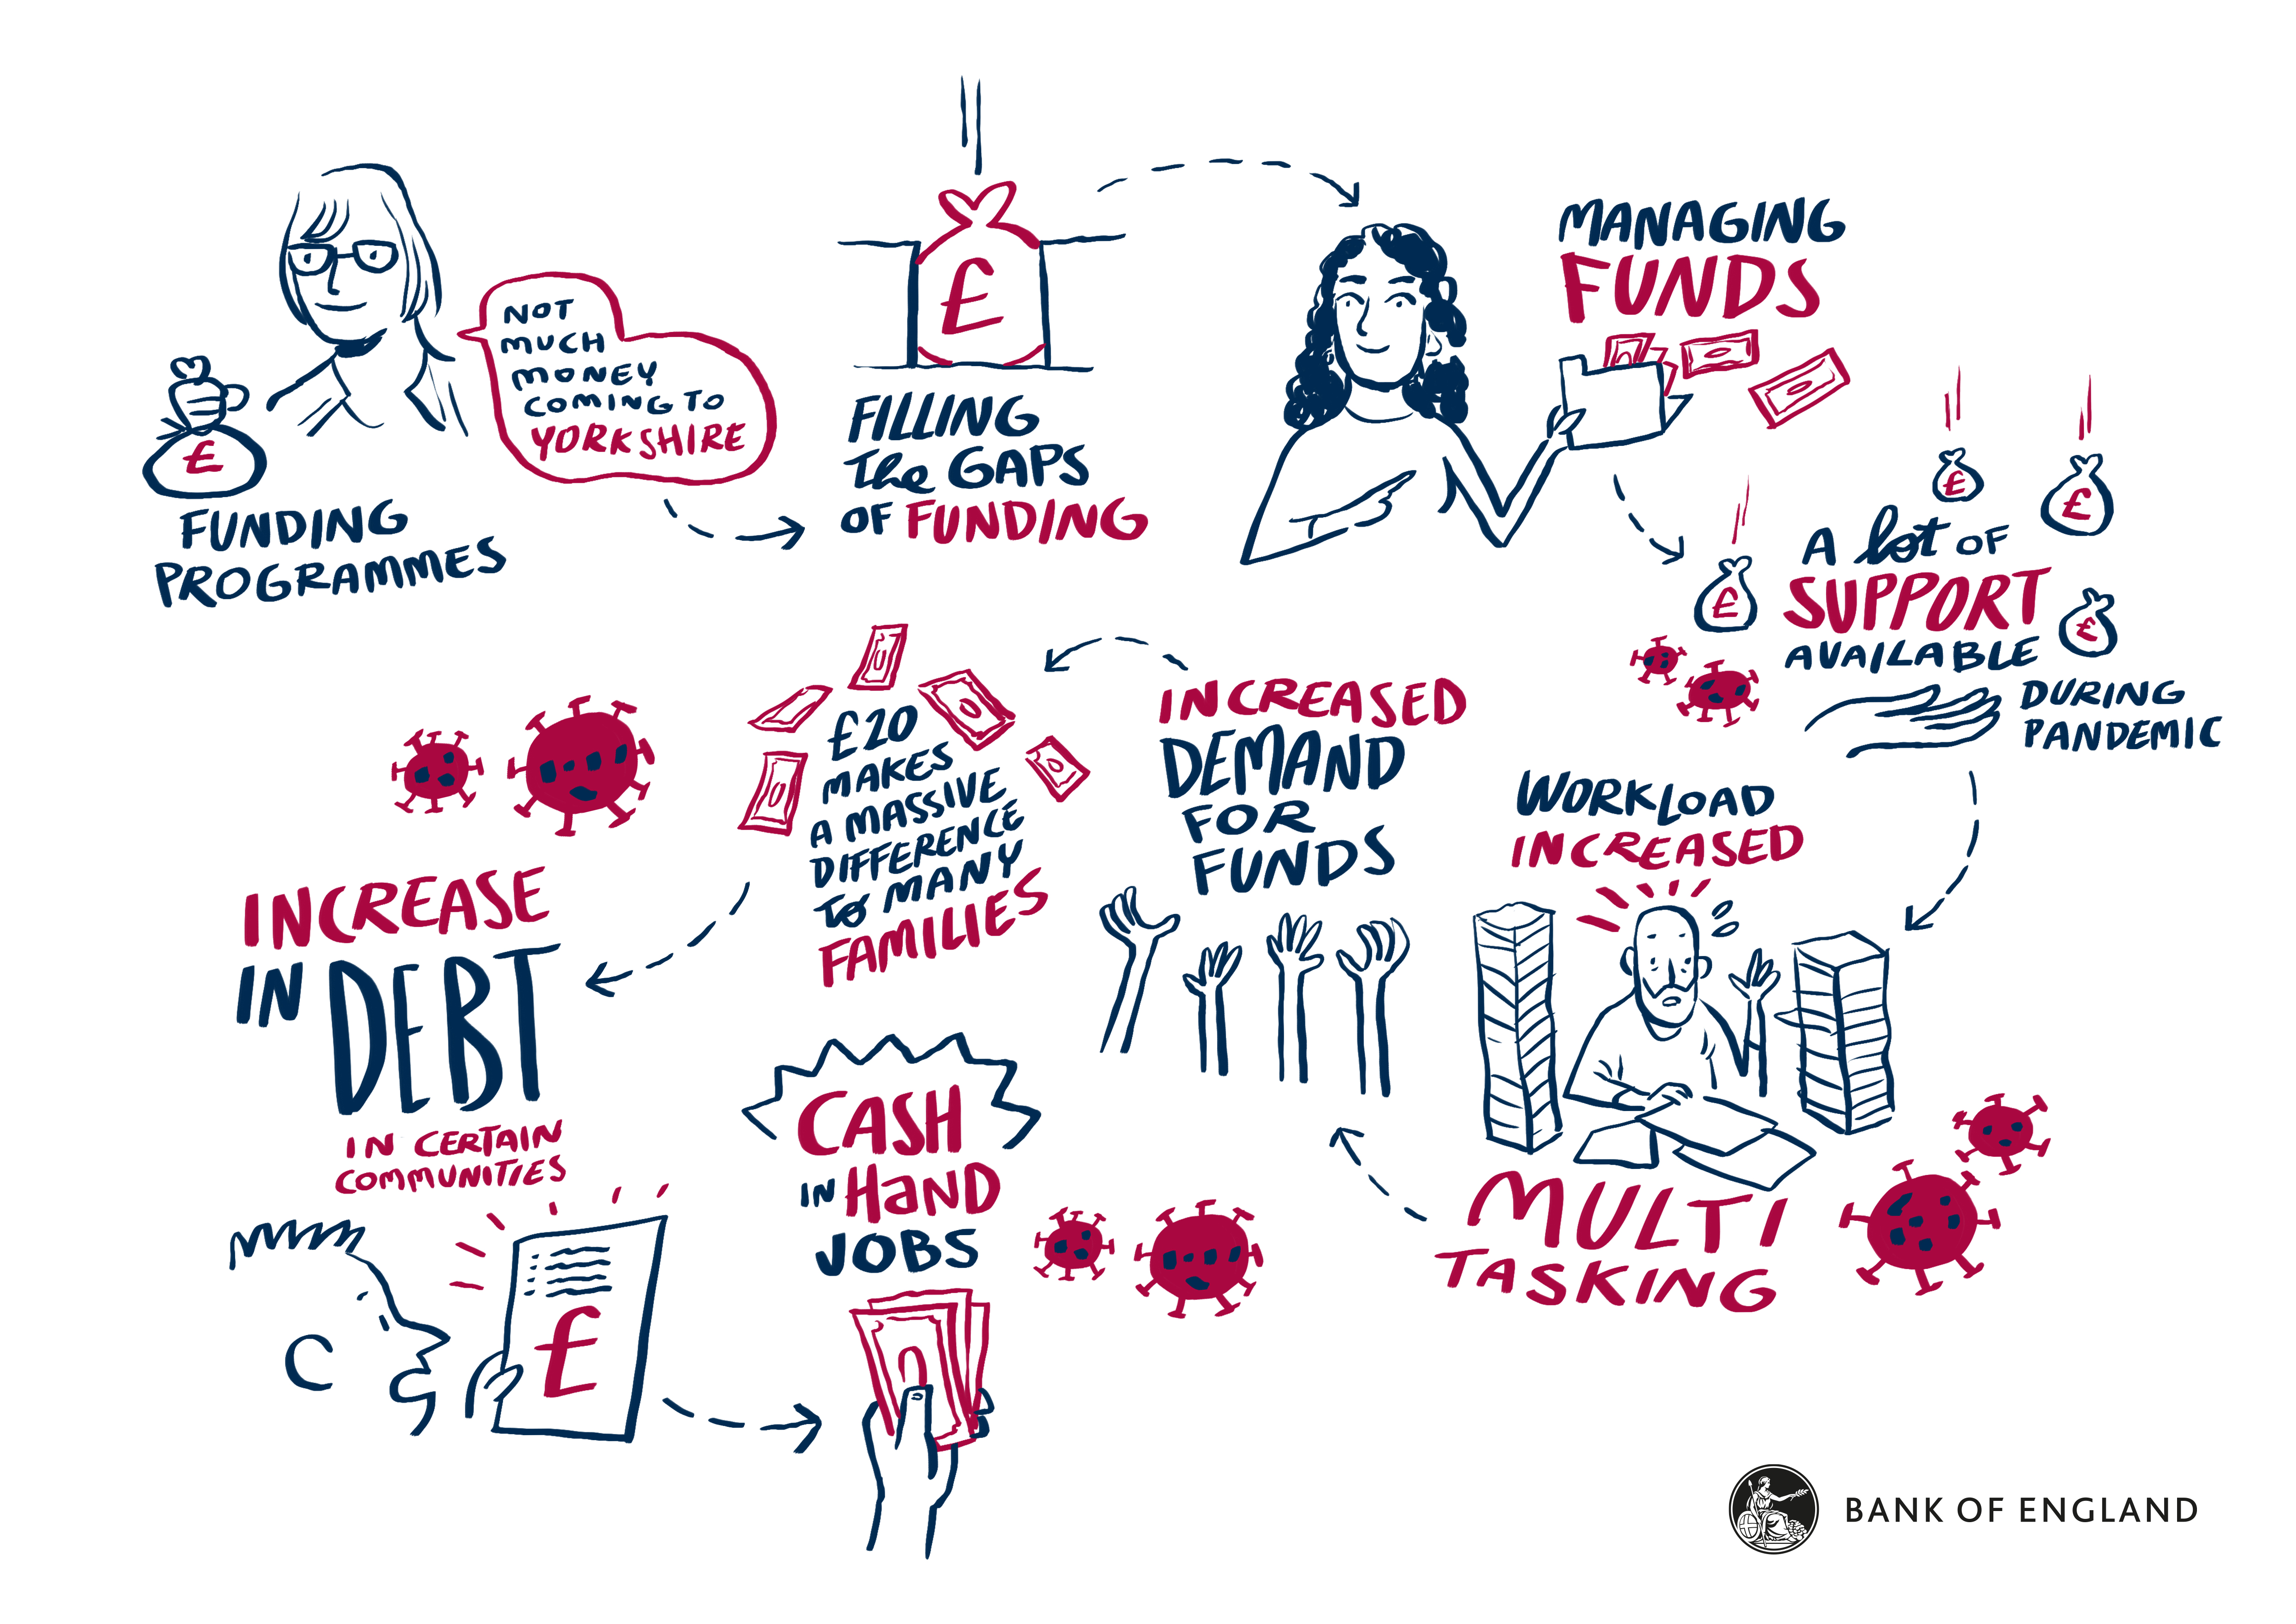 NOT
MUCH
MONEY
COMING TO
YORKSHIRE
£
FUNDING
PROGRAMMES
£
FILLING
the GAPS
OF FUNDING
MANAGING
FUNDS
£
£
£
£
A lot OF
SUPPORT
AVAILABLE
DURING
PANDEMIC
WORKLOAD
INCREASED
MULTI
TASKING
INCREASED
DEMAND
FOR
FUNDS
£20
MAKES
A MASSIVE
DIFFERENCE
TO MANY
FAMILIES
INCREASE
IN DEBT
IN CERTAIN
COMMUNITIES
£
CASH
IN HaND
JOBS
BANK OF ENGLAND